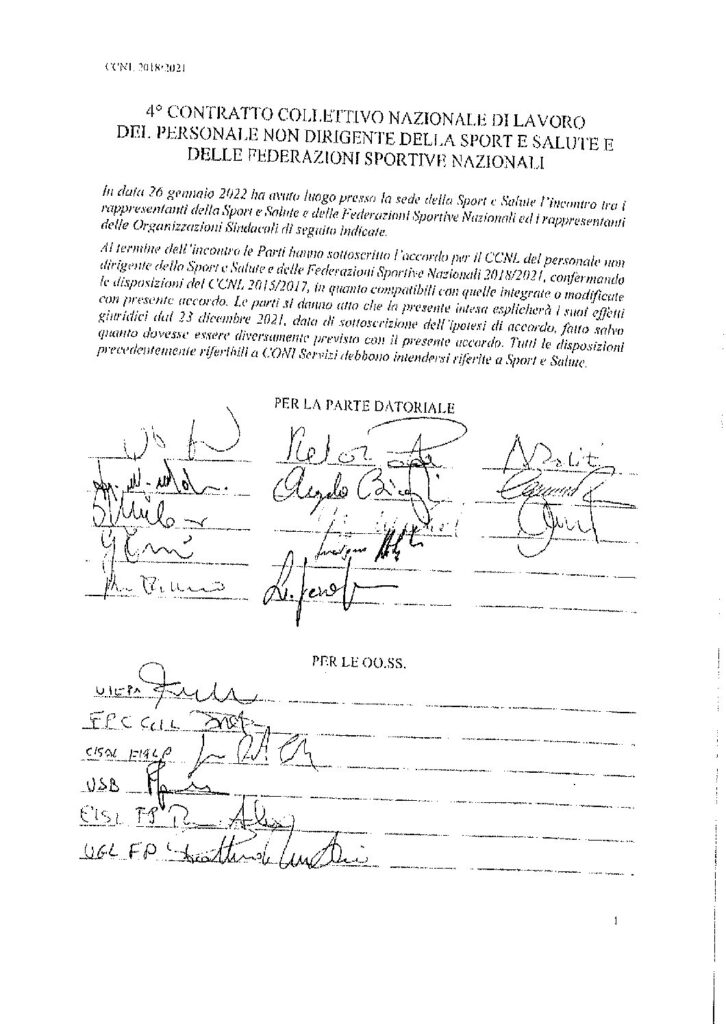 CCNL 2018/2021
4° CONTRATTO COLLETTIVO NAZIONALE DI LAVORO
DEL PERSONALE NON DIRIGENTE DELLA SPORT E SALUTE E
DELLE FEDERAZIONI SPORTIVE NAZIONALI
In data 26 gennaio 2022 ha avuto luogo presso la sede della Sport e Salute l'incontro tra i
rappresentanti della Sport e Salute e delle Federazioni Sportive Nazionali ed i rappresentanti
delle Organizzazioni Sindacali di seguito indicate.
Al termine dell'incontro le Parti hanno sottoscritto l'accordo per il CCNL del personale non
dirigente della Sport e Salute e delle Federazioni Sportive Nazionali 2018/2021, confermando
le disposizioni del CCNL 2015/2017, in quanto compatibili con quelle integrate o modificate
con presente accordo. Le parti si danno atto che la presente intesa esplicherà i suoi effetti
giuridici dal 23 dicembre 2021, data di sottoscrizione dell'ipotesi di accordo, fatto salvo
quanto dovesse essere diversamente previsto con il presente accordo. Tutti le disposizioni
precedentemente riferibili a CONI Servizi debbono intendersi riferite a Sport e Salute.
PER LA PARTE DATORIALE
Angelo
PER LE OO.SS.
UILPA
FPC CGIL
CISAL FIALP
USB
CISL FP
UGL FP
1